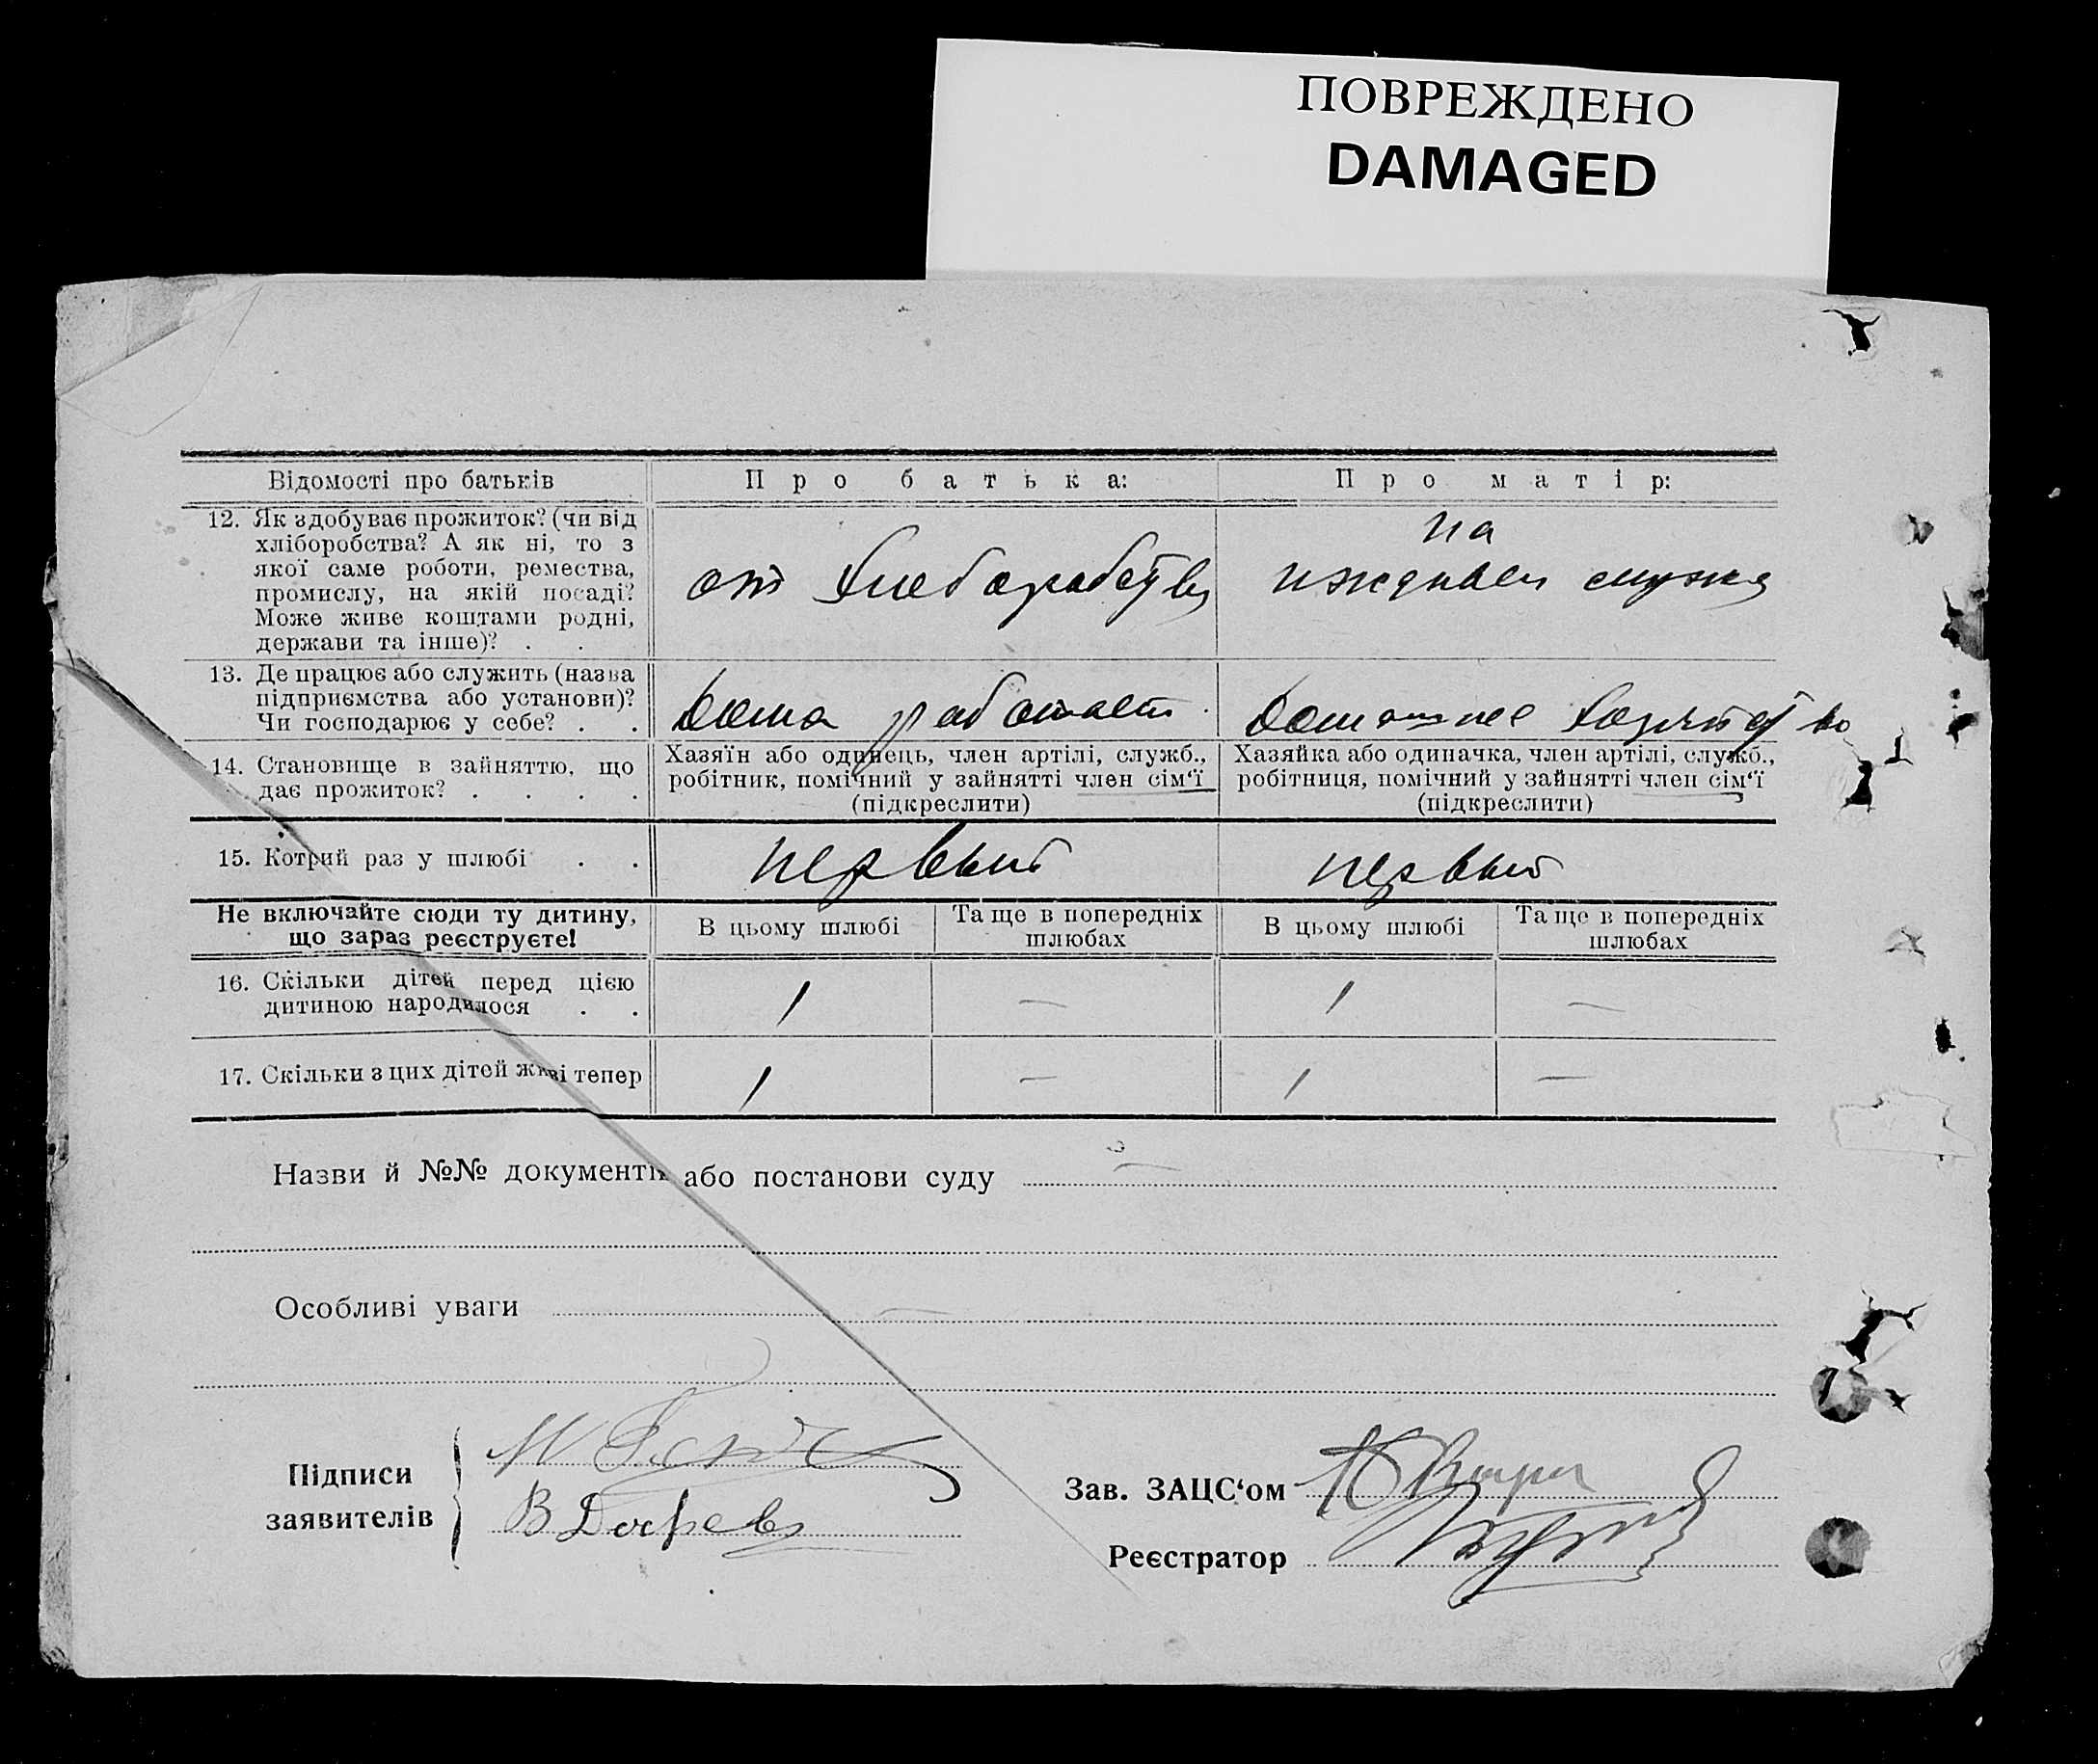 ПОВРЕЖДЕНО
DAMAGED
Відомості про батьків
Про батька:
Про матір:
12. Як здобуває прожиток? (чи від
хліборобства? А як ні, то з
якої саме роботи, ремества,
промислу, на якій посаді?
Може живе коштами родні,
держави та інше)? . .
от хлеборобства
на
иждивен мужа
13. Де працює або служить (назва
підприємства або установи)?
Чи господарює у себе? . .
Дома работает.
Домашнее хозяйство
14. Становище в зайняттю, що
дає прожиток? . . . .
Хазяїн або одинець, член артілі, служб.,
робітник, помічний у зайнятті член сім‘ї
(підкреслити)
Хазяйка або одиначка, член артілі, служб.,
робітниця, помічний у зайнятті член сім‘ї
(підкреслити)
15. Котрий раз у шлюбі . .
первый
первый
Не включайте сюди ту дитину,
що зараз реєструєте!
В цьому шлюбі
Та ще в попередніх
шлюбах
В цьому шлюбі
Та ще в попередніх
шлюбах
16. Скільки дітей перед цією
дитиною народилося . .
1 — 1 —
17. Скільки з цих дітей живі тепер
1 — 1 —
Назви й №№ документів або постанови суду —
Особливі уваги —
Підписи
заявителів
В
Зав. ЗАЦС‘ом
Реєстратор